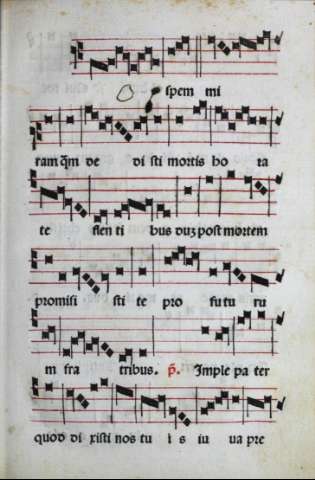 O spem mi
ram qm de di sti mortis ho ra
te flen ti bus duz post mortem
promisi sti te pro futu ru
m fra tribus. p. Imple pa ter
quod di xisti nos tu i s iu ua pre